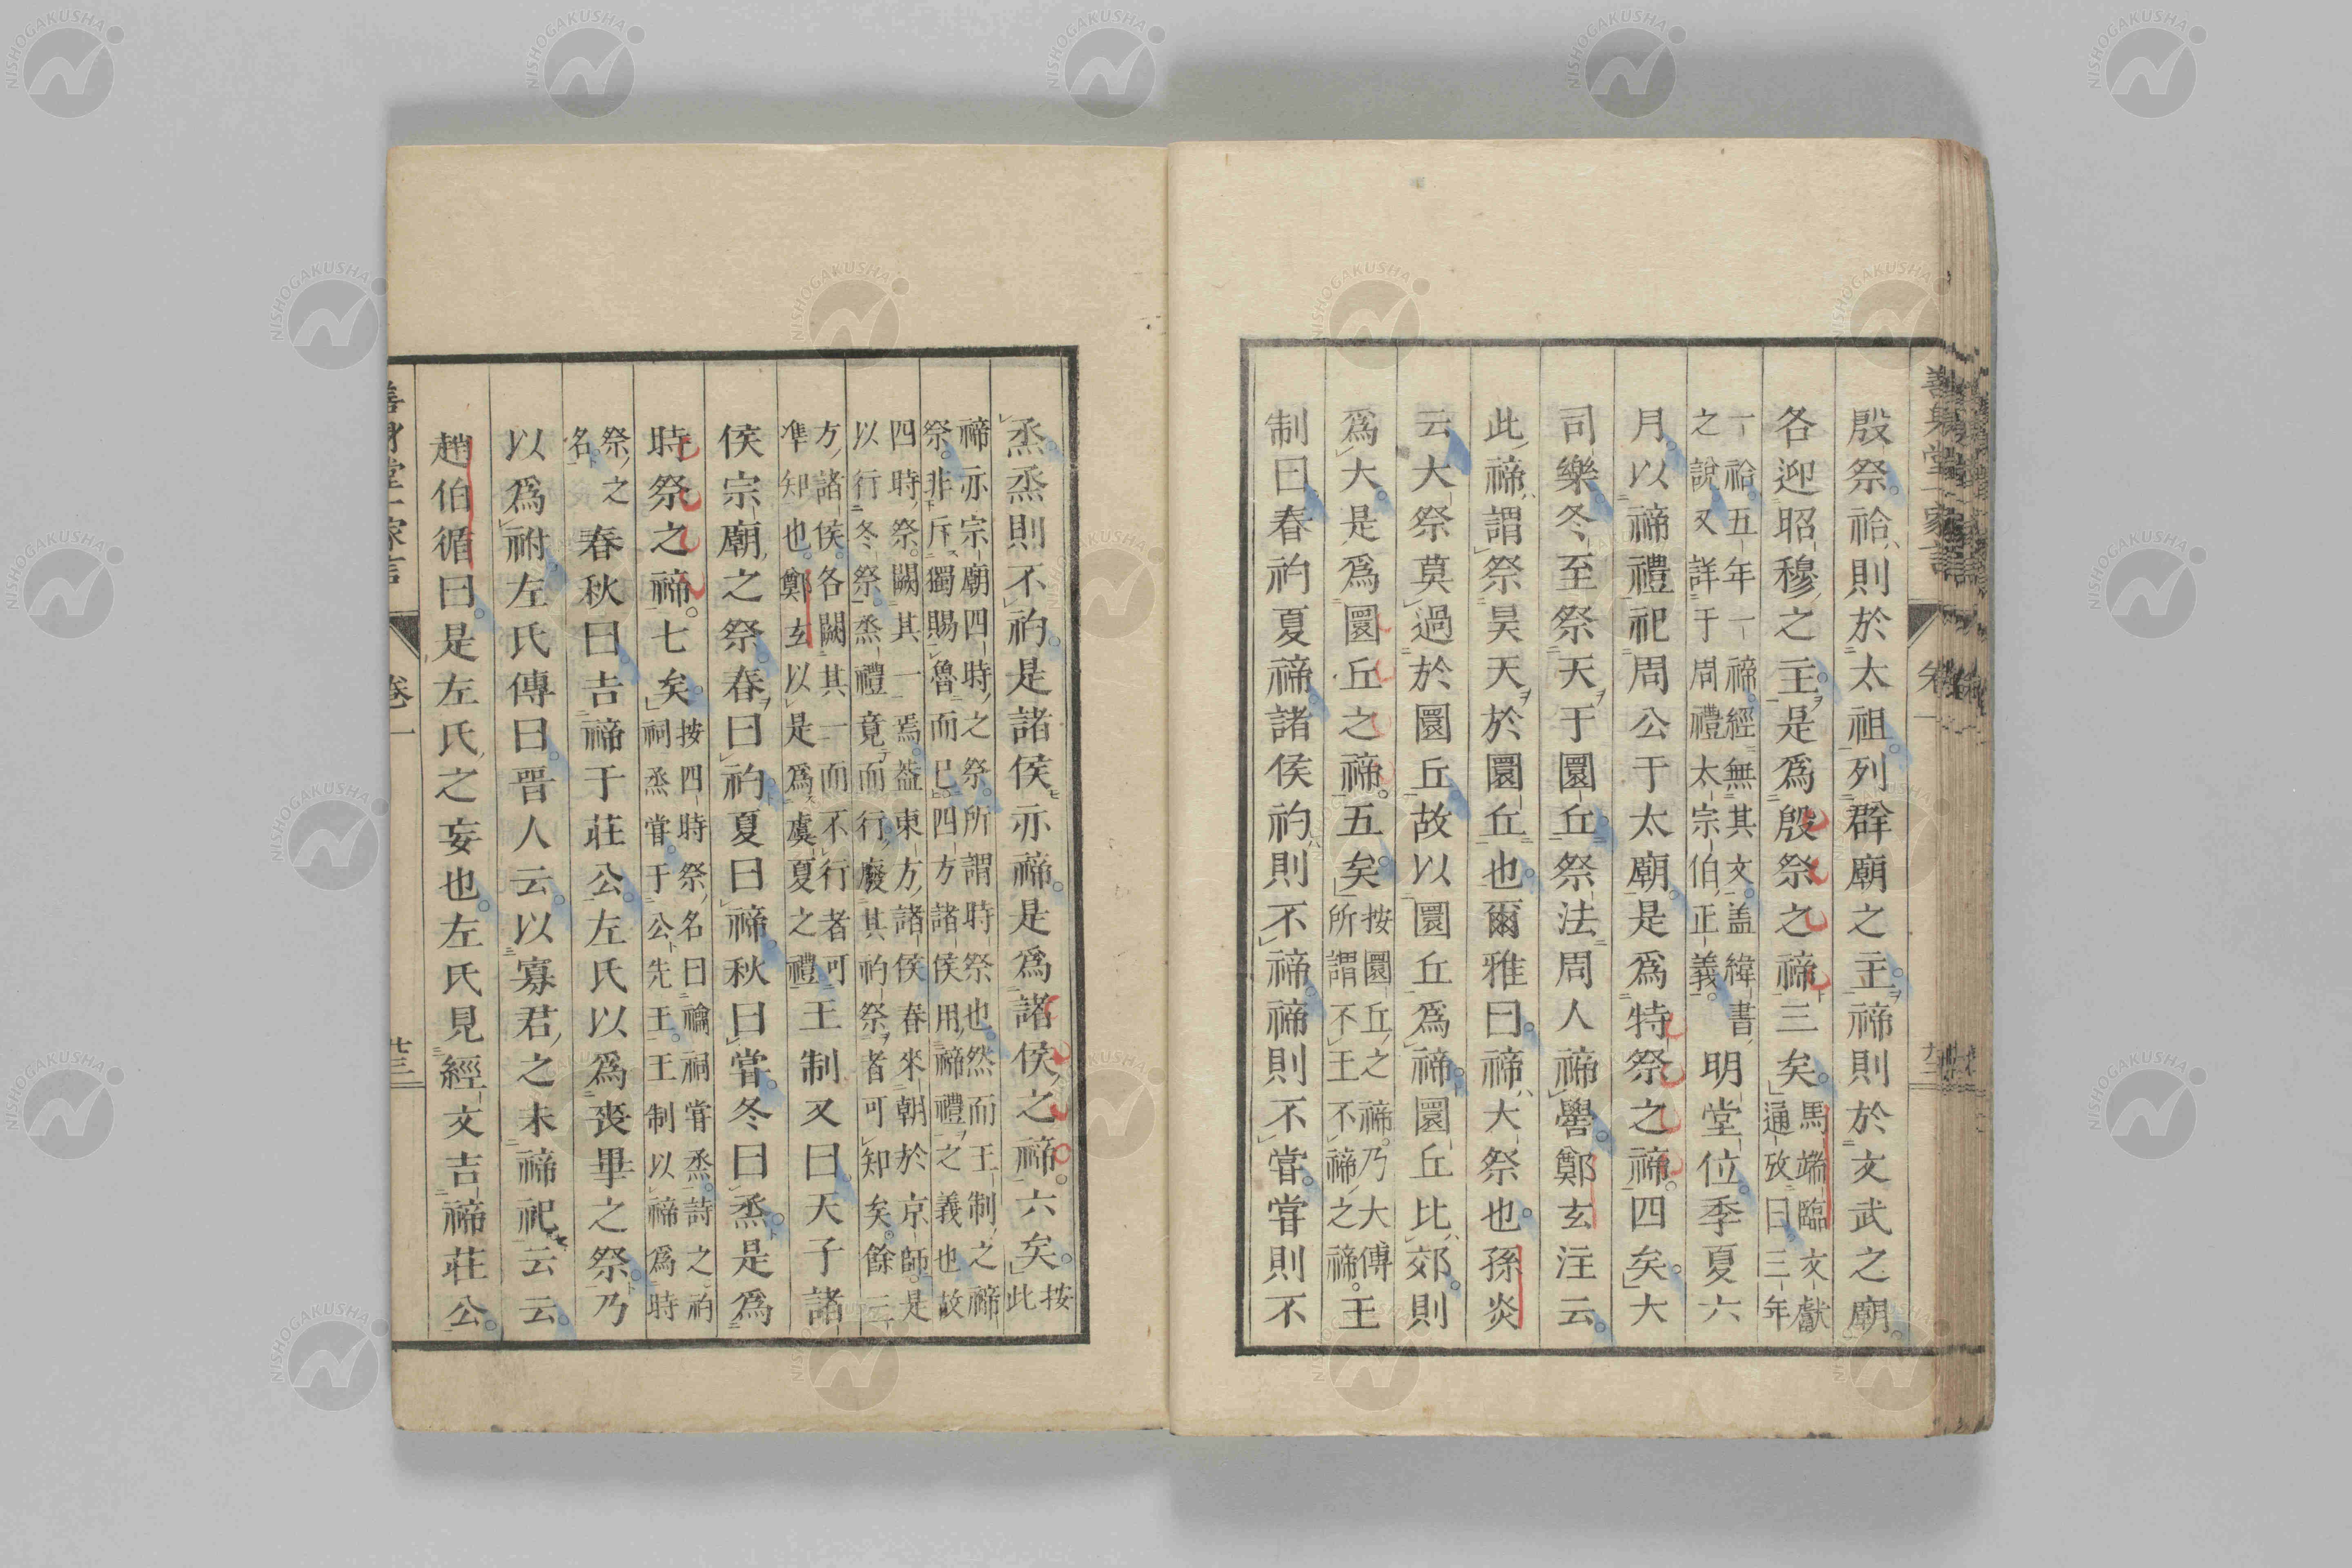 殷祭祫則於太祖列群廟之主禘則於文武之廟
各迎昭穆之主是爲殷祭之禘三矣馬端臨文獻
通攷曰三年
一祫五年一禘經無其文盖緯書
之說又詳于周禮太宗伯正義明堂位季夏六
月以禘禮祀周公于太廟是爲特祭之禘四矣大
司樂冬至祭天于圜丘祭法周人禘嚳鄭玄注云
此禘謂祭昊天於圜丘也爾雅曰禘大祭也孫炎
云大祭莫過於圜丘故以圜丘爲禘圜丘比郊則
爲大是爲圜丘之禘五矣按圜丘之禘乃大傳
所謂不王不禘之禘王
制曰春礿夏禘諸侯礿則不禘禘則不嘗嘗則不
烝烝則不礿是諸侯亦禘是爲諸侯之禘六矣按
此
禘亦宗廟四時之祭所謂時祭也然而王制之禘
祭非斥獨賜魯而已四方諸侯用禘禮之義也故
四時祭闕其一焉葢東方諸侯春來朝於京師是
以行冬祭烝禮竟而行廢其礿祭者可知矣餘三
方諸侯各闕其一而不行者可
準知也鄭玄以是爲虞夏之禮王制又曰天子諸
侯宗廟之祭春曰礿夏曰禘秋曰嘗冬曰烝是爲
時祭之禘七矣按四時祭名曰禴祠嘗烝詩之礿
祠烝嘗于公先王王制以禘爲時
祭之
名春秋曰吉禘于莊公左氏以爲喪畢之祭乃
以爲祔左氏傳曰晋人云以寡君之未禘祀云云
趙伯循曰是左氏之妄也左氏見經文吉禘莊公
卷一
NISHOGAKUSHA